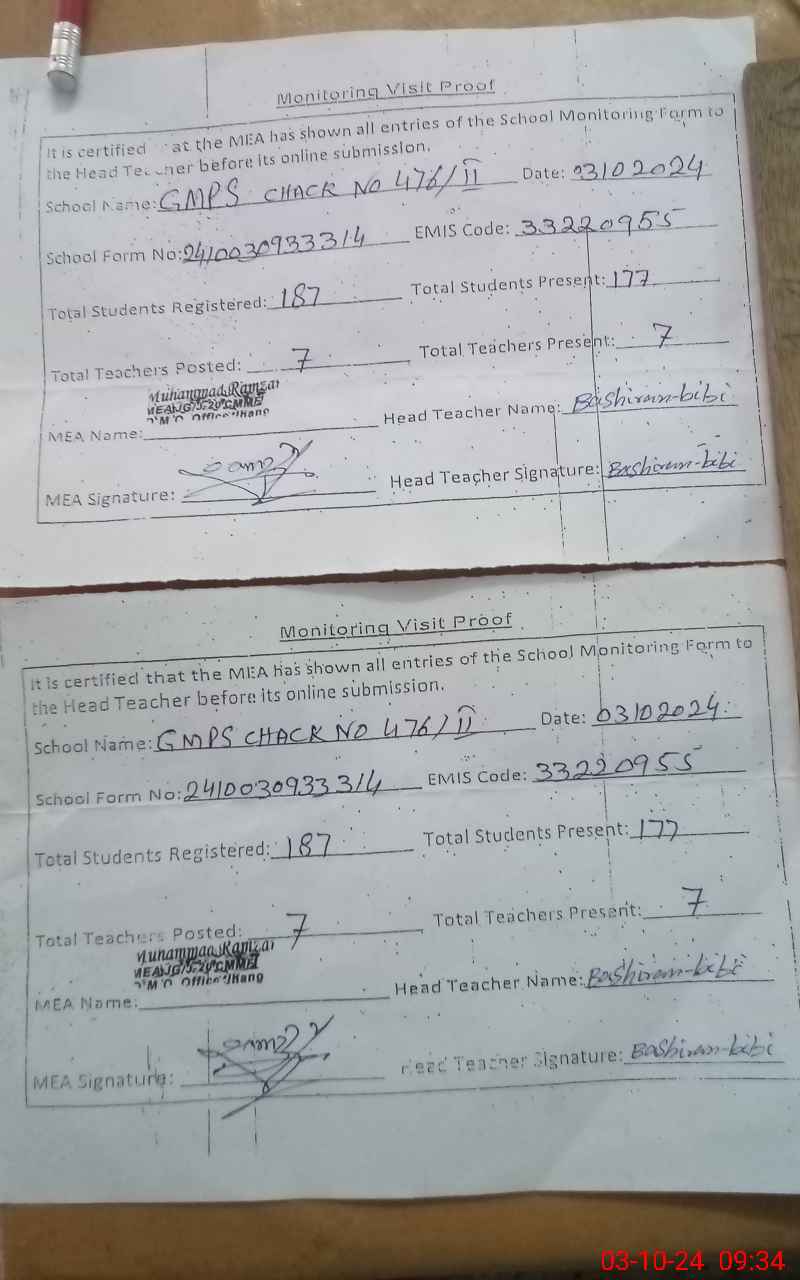 Monitoring Visit Proof
It is certified at the MEA has shown all entries of the School Monitoring Form to
the Head Teacher before its online submission.
School Name: GMPS CHACK NO 476/II Date: 03102024
School Form No: 241003093 3314 EMIS Code: 33220955
Total Students Registered: 187 Total Students Present: 177
Total Teachers Posted: 7 Total Teachers Present: 7
Muhammad Ramzan
Office Jhang
MEA Name: Head Teacher Name: Bashiran-bibi
MEA Signature: Head Teacher Signature: Bashiran-bibi
Monitoring Visit Proof
It is certified that the MEA has shown all entries of the School Monitoring Form to
the Head Teacher before its online submission.
School Name: GMPS CHACK NO 476/II Date: 03102024
School Form No: 241003093 3314 EMIS Code: 33220955
Total Students Registered: 187 Total Students Present: 177
Total Teachers Posted: 7 Total Teachers Present: 7
Muhammad Ramzan
Office Jhang
MEA Name: Head Teacher Name: Bashiran-bibi
MEA Signature: Head Teacher Signature: Bashiran-bibi
03-10-24 09:34